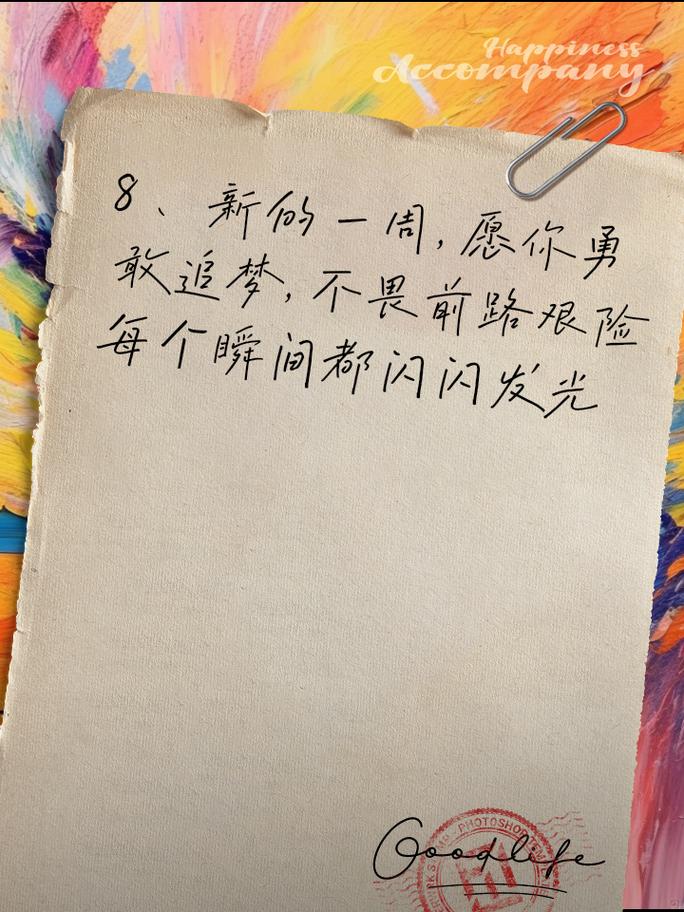 Happiness
Accompany
8、新的一周,愿你勇
敢追梦,不畏前路艰险
每个瞬间都闪闪发光
PHOTOSHOP
Goodlife